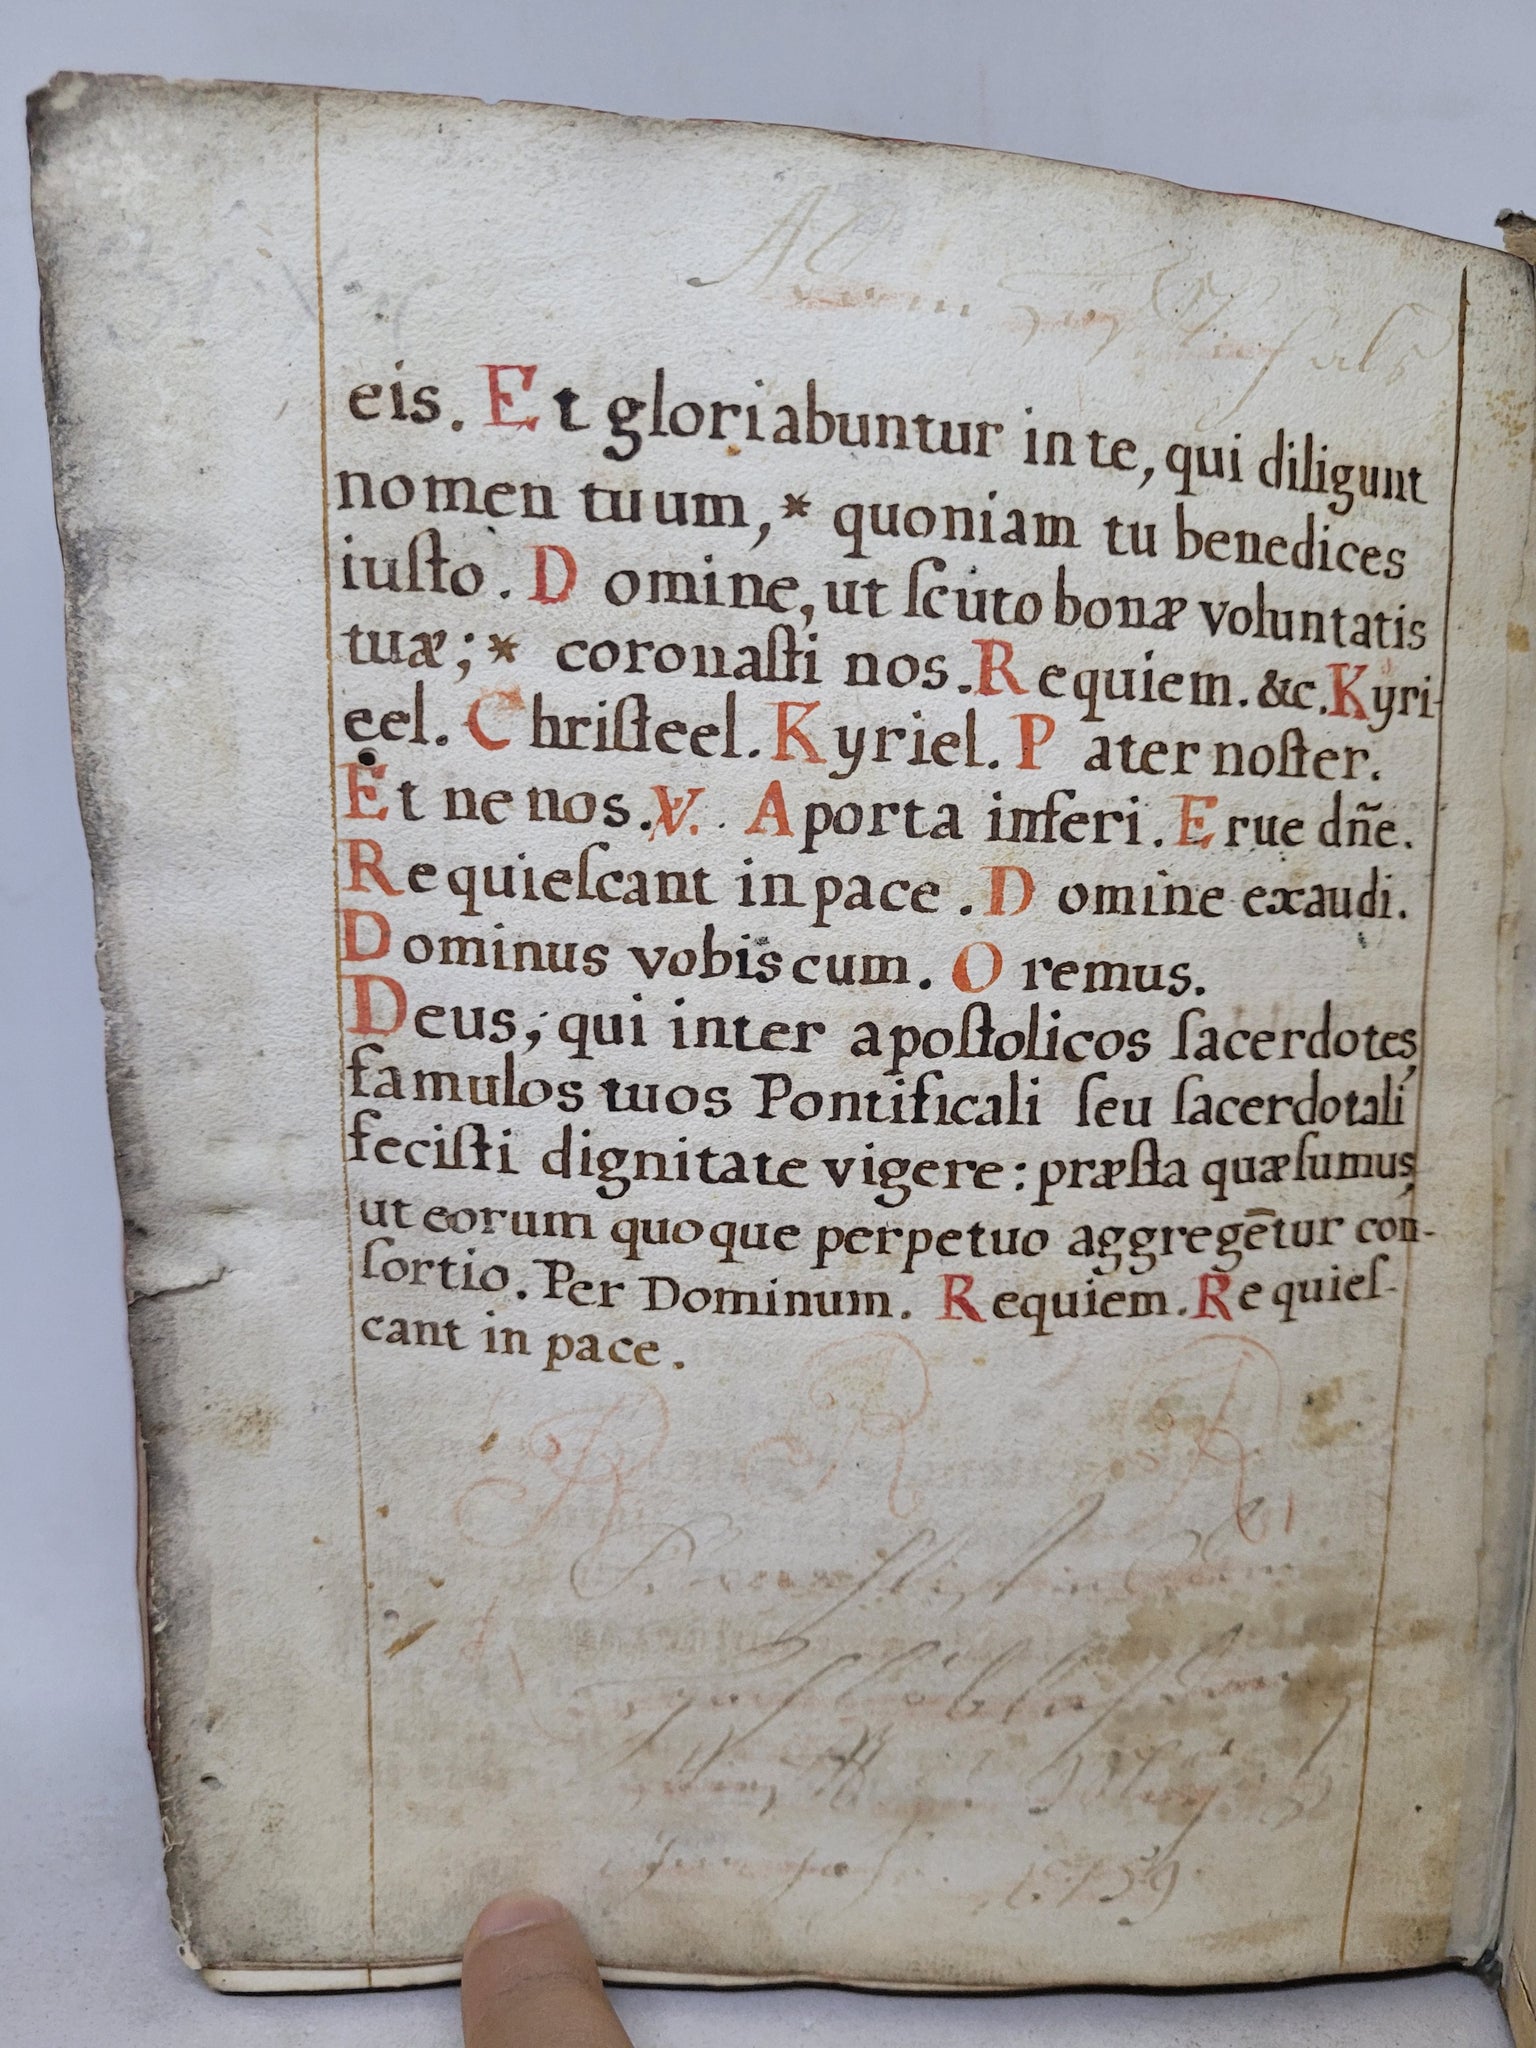 eis. Et gloriabuntur in te, qui diligunt
nomen tuum, * quoniam tu benedices
iuſto. Domine, ut ſcuto bonæ voluntatis
tuæ; * coronaſti nos. Requiem. &c. Kyri-
eel. Chriſteel. Kyriel. Pater noſter.
Et ne nos. ℣. A porta inferi. Erue dñe.
Requieſcant in pace. Domine exaudi.
Dominus vobiscum. Oremus.
Deus, qui inter apoſtolicos ſacerdotes,
famulos tuos Pontificali ſeu ſacerdotali
feciſti dignitate vigere: præſta quæſumus,
ut eorum quoque perpetuo aggregẽtur con-
ſortio. Per Dominum. Requiem. Requieſ-
cant in pace.
R R R